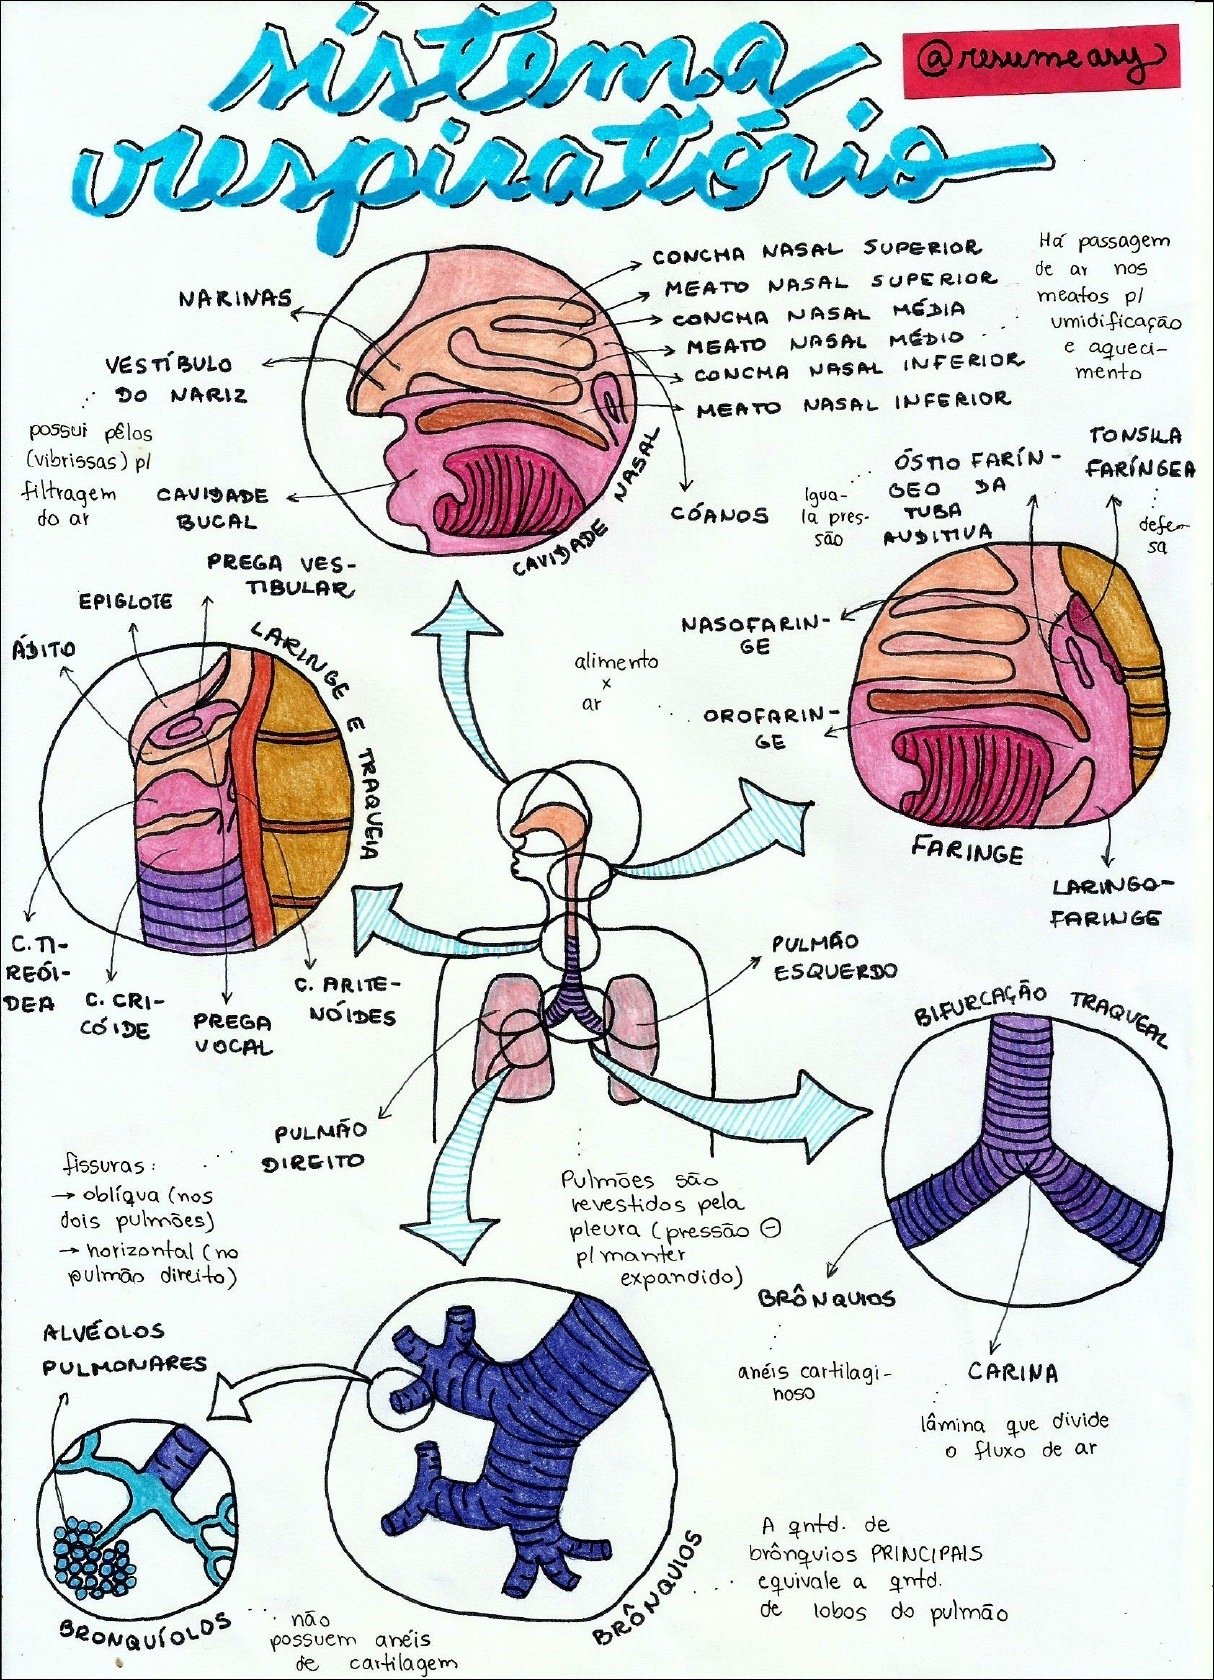 sistema
respiratório
@resumeasy
CONCHA NASAL SUPERIOR
MEATO NASAL SUPERIOR
CONCHA NASAL MÉDIA
MEATO NASAL MÉDIO
CONCHA NASAL INFERIOR
MEATO NASAL INFERIOR
Há passagem
de ar nos
meatos p/
umidificação
e aqueci-
mento
NARINAS
VESTÍBULO
DO NARIZ
possui pêlos
(vibrissas) p/
filtragem
do ar
CAVIDADE
BUCAL
CAVIDADE NASAL
CÓANOS
Igua-
la pres-
são
ÓSTIO FARÍN-
GEO DA
TUBA
AUDITIVA
TONSILA
FARÍNGEA
defe-
sa
PREGA VES-
TIBULAR
EPIGLOTE
ÁDITO
LARINGE E TRAQUEIA
alimento
x
ar
NASOFARIN-
GE
OROFARIN-
GE
FARINGE
LARINGO-
FARINGE
C. TI-
REÓI-
DEA
C. CRI-
CÓIDE
PREGA
VOCAL
C. ARITE-
NÓIDES
PULMÃO
ESQUERDO
BIFURCAÇÃO TRAQUEAL
PULMÃO
DIREITO
fissuras:
→ oblíqua (nos
dois pulmões)
→ horizontal (no
pulmão direito)
Pulmões são
revestidos pela
pleura (pressão ⊖
p/ manter
expandido)
BRÔNQUIOS
anéis cartilagi-
noso
CARINA
lâmina que divide
o fluxo de ar
ALVÉOLOS
PULMONARES
BRONQUÍOLOS
não
possuem anéis
de cartilagem
BRÔNQUIOS
A qntd. de
brônquios PRINCIPAIS
equivale a qntd.
de lobos do pulmão